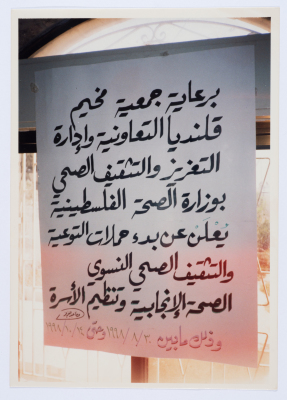 برعاية جمعية مخيم
قلنديا التعاونية وإدارة
التعزيز والتثقيف الصحي
بوزارة الصحة الفلسطينية
يُعلن عن بدء حملات التوعية
والتثقيف الصحي النسوي
الصحة الإنجابية وتنظيم الأسرة
وذلك مابين
وحتى